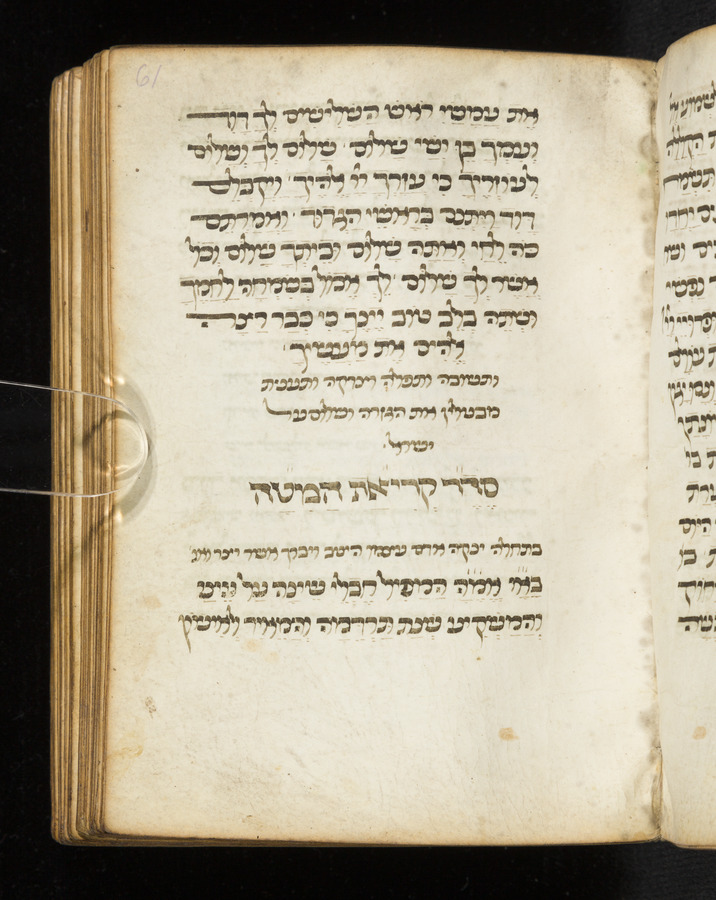 61
את עמשי ראש השלישים לך דויד
ועמך בן ישי שלום שלום לך ושלום
לעוזריך כי עזרך יי אלהיך ויקבלם
דוד ויתנם בראשי הגדוד ואמרתם
כה לחי ואתה שלום וביתך שלום וכל
אשר לך שלום לך אכול בשמחה לחמך
ושתה בלב טוב יינך כי כבר רצה
אלהים את מעשיך
ותשובה ותפלה וצדקה ותענית
מבטלין את הגזרה ושלום על
ישראל
סדר קריאת המטה
בתחלה ינקה אדם עצמו היטב ויבדק אשר
באי אמה המפיל חבלי שינה על עיני
והמשקיע שנת תרדמה והמאיר לאישון